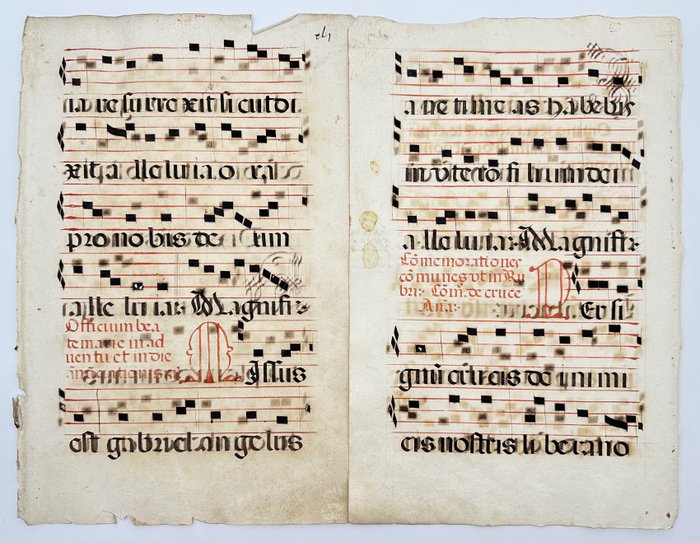 ia ve surre xit si cut di
xit a lle lui a o ra
pro no bis de um
a lle lui a: Magnifi:
Officium bea
te marie in ad
uentu et in die
Missus
est gabriel an ge lus
a ue ti me as ha be bis
in vtero fi li um dei
a lle lui a: Magnifi:
Cōmemorationes
cōmunes vt in Ru
bri: Cōm. de cruce
Aña:
Per si
gnū crucis de i ni mi
cis nostris li bera no